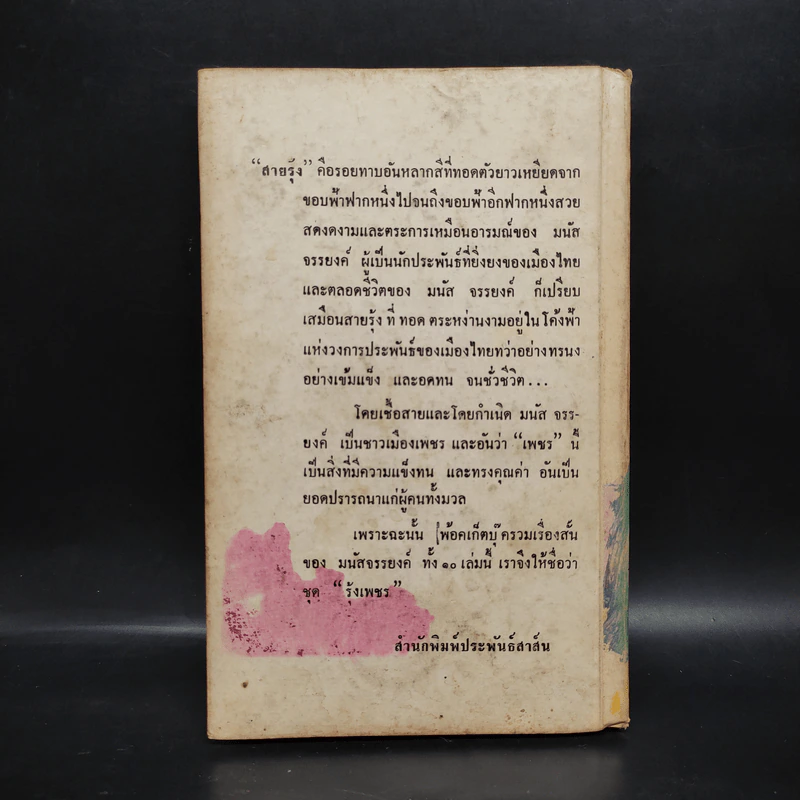 “สายรุ้ง” คือรอยทาบอันหลากสีที่ทอดตัวยาวเหยียดจาก
ขอบฟ้าฟากหนึ่งไปจนถึงขอบฟ้าอีกฟากหนึ่งสวย
สดงดงามและตระการเหมือนอารมณ์ของ มนัส
จรรยงค์ ผู้เป็นนักประพันธ์ที่ยิ่งยงของเมืองไทย
และตลอดชีวิตของ มนัส จรรยงค์ ก็เปรียบ
เสมือนสายรุ้ง ที่ ทอด ตระหง่านงามอยู่ใน โค้งฟ้า
แห่งวงการประพันธ์ของเมืองไทยทว่าอย่างทรนง
อย่างเข้มแข็ง และอดทน จนชั่วชีวิต...
โดยเชื้อสายและโดยกำเนิด มนัส จรร-
ยงค์ เป็นชาวเมืองเพชร และอันว่า “เพชร” นี้
เป็นสิ่งที่มีความแข็งทน และทรงคุณค่า อันเป็น
ยอดปรารถนาแก่ผู้คนทั้งมวล
เพราะฉะนั้น พ้อคเก็ตบุ๊ครวมเรื่องสั้น
ของ มนัสจรรยงค์ ทั้ง ๑๐ เล่มนี้ เราจึงให้ชื่อว่า
ชุด “รุ้งเพชร”
สำนักพิมพ์ประพันธ์สาส์น